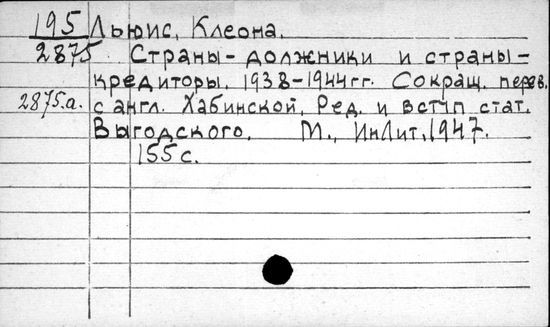 195 Льюис, Клеона.
2875 Страны-должники и страны-
кредиторы. 1938-1944гг. Сокращ. перев.
2875.а. с англ. Хабинской. Ред. и вступ стат.
Выгодского. М., ИнЛит, 1947.
155 с.